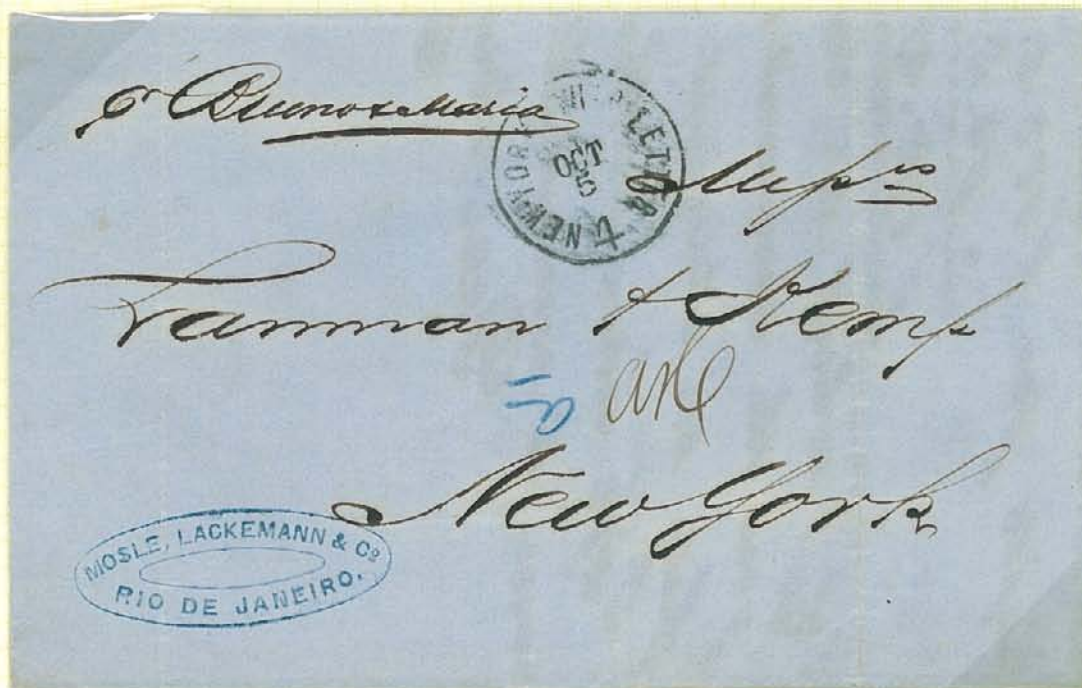 Maria
NEW YORK SHIP LETTER 4
OCT
5
Messrs
Lanman & Kemp
New York
MOSLE, LACKEMANN & Cº
RIO DE JANEIRO.